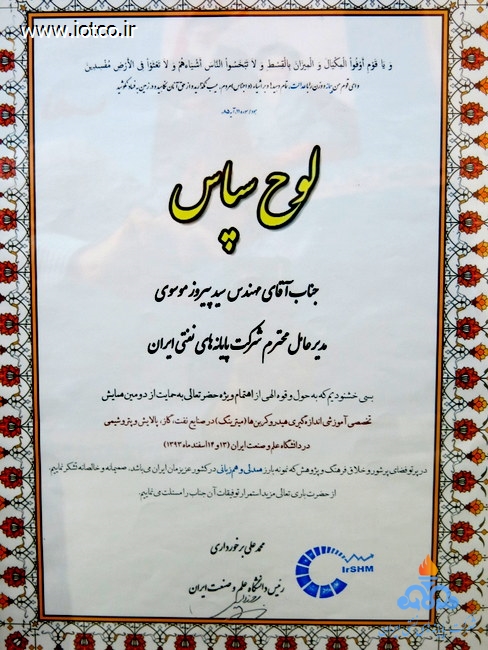 www.iotco.ir
و یا قوم أوفوا المکیال و المیزان بالقسط و لا تبخسوا الناس أشیاءهم و لا تعثوا فی الأرض مفسدین
لوح سپاس
جناب آقای مهندس سید پیروز موسوی
مدیرعامل محترم شرکت پایانه‌های نفتی ایران
بسی خشنودیم که به حول و قوه الهی از اهتمام ویژه حضرتعالی به حمایت از دومین همایش
تخصصی آموزشی اندازه‌گیری هیدروکربن‌ها (میترینگ) در صنایع نفت، گاز، پالایش و پتروشیمی
در دانشگاه علم و صنعت ایران (۱۳ و ۱۴ اسفند ماه ۱۳۹۳)
در پرتو فضای پرشور و خلاق فرهنگ و پژوهش که نمونه بارز همدلی و همزبانی در کشور عزیزمان ایران می‌باشد، صمیمانه و خالصانه تشکر نماییم.
از حضرت باری تعالی مزید استمرار توفیقات آن جناب را مسئلت می‌نماییم.
محمد علی برخورداری
رئیس دانشگاه علم و صنعت ایران
IrSHM